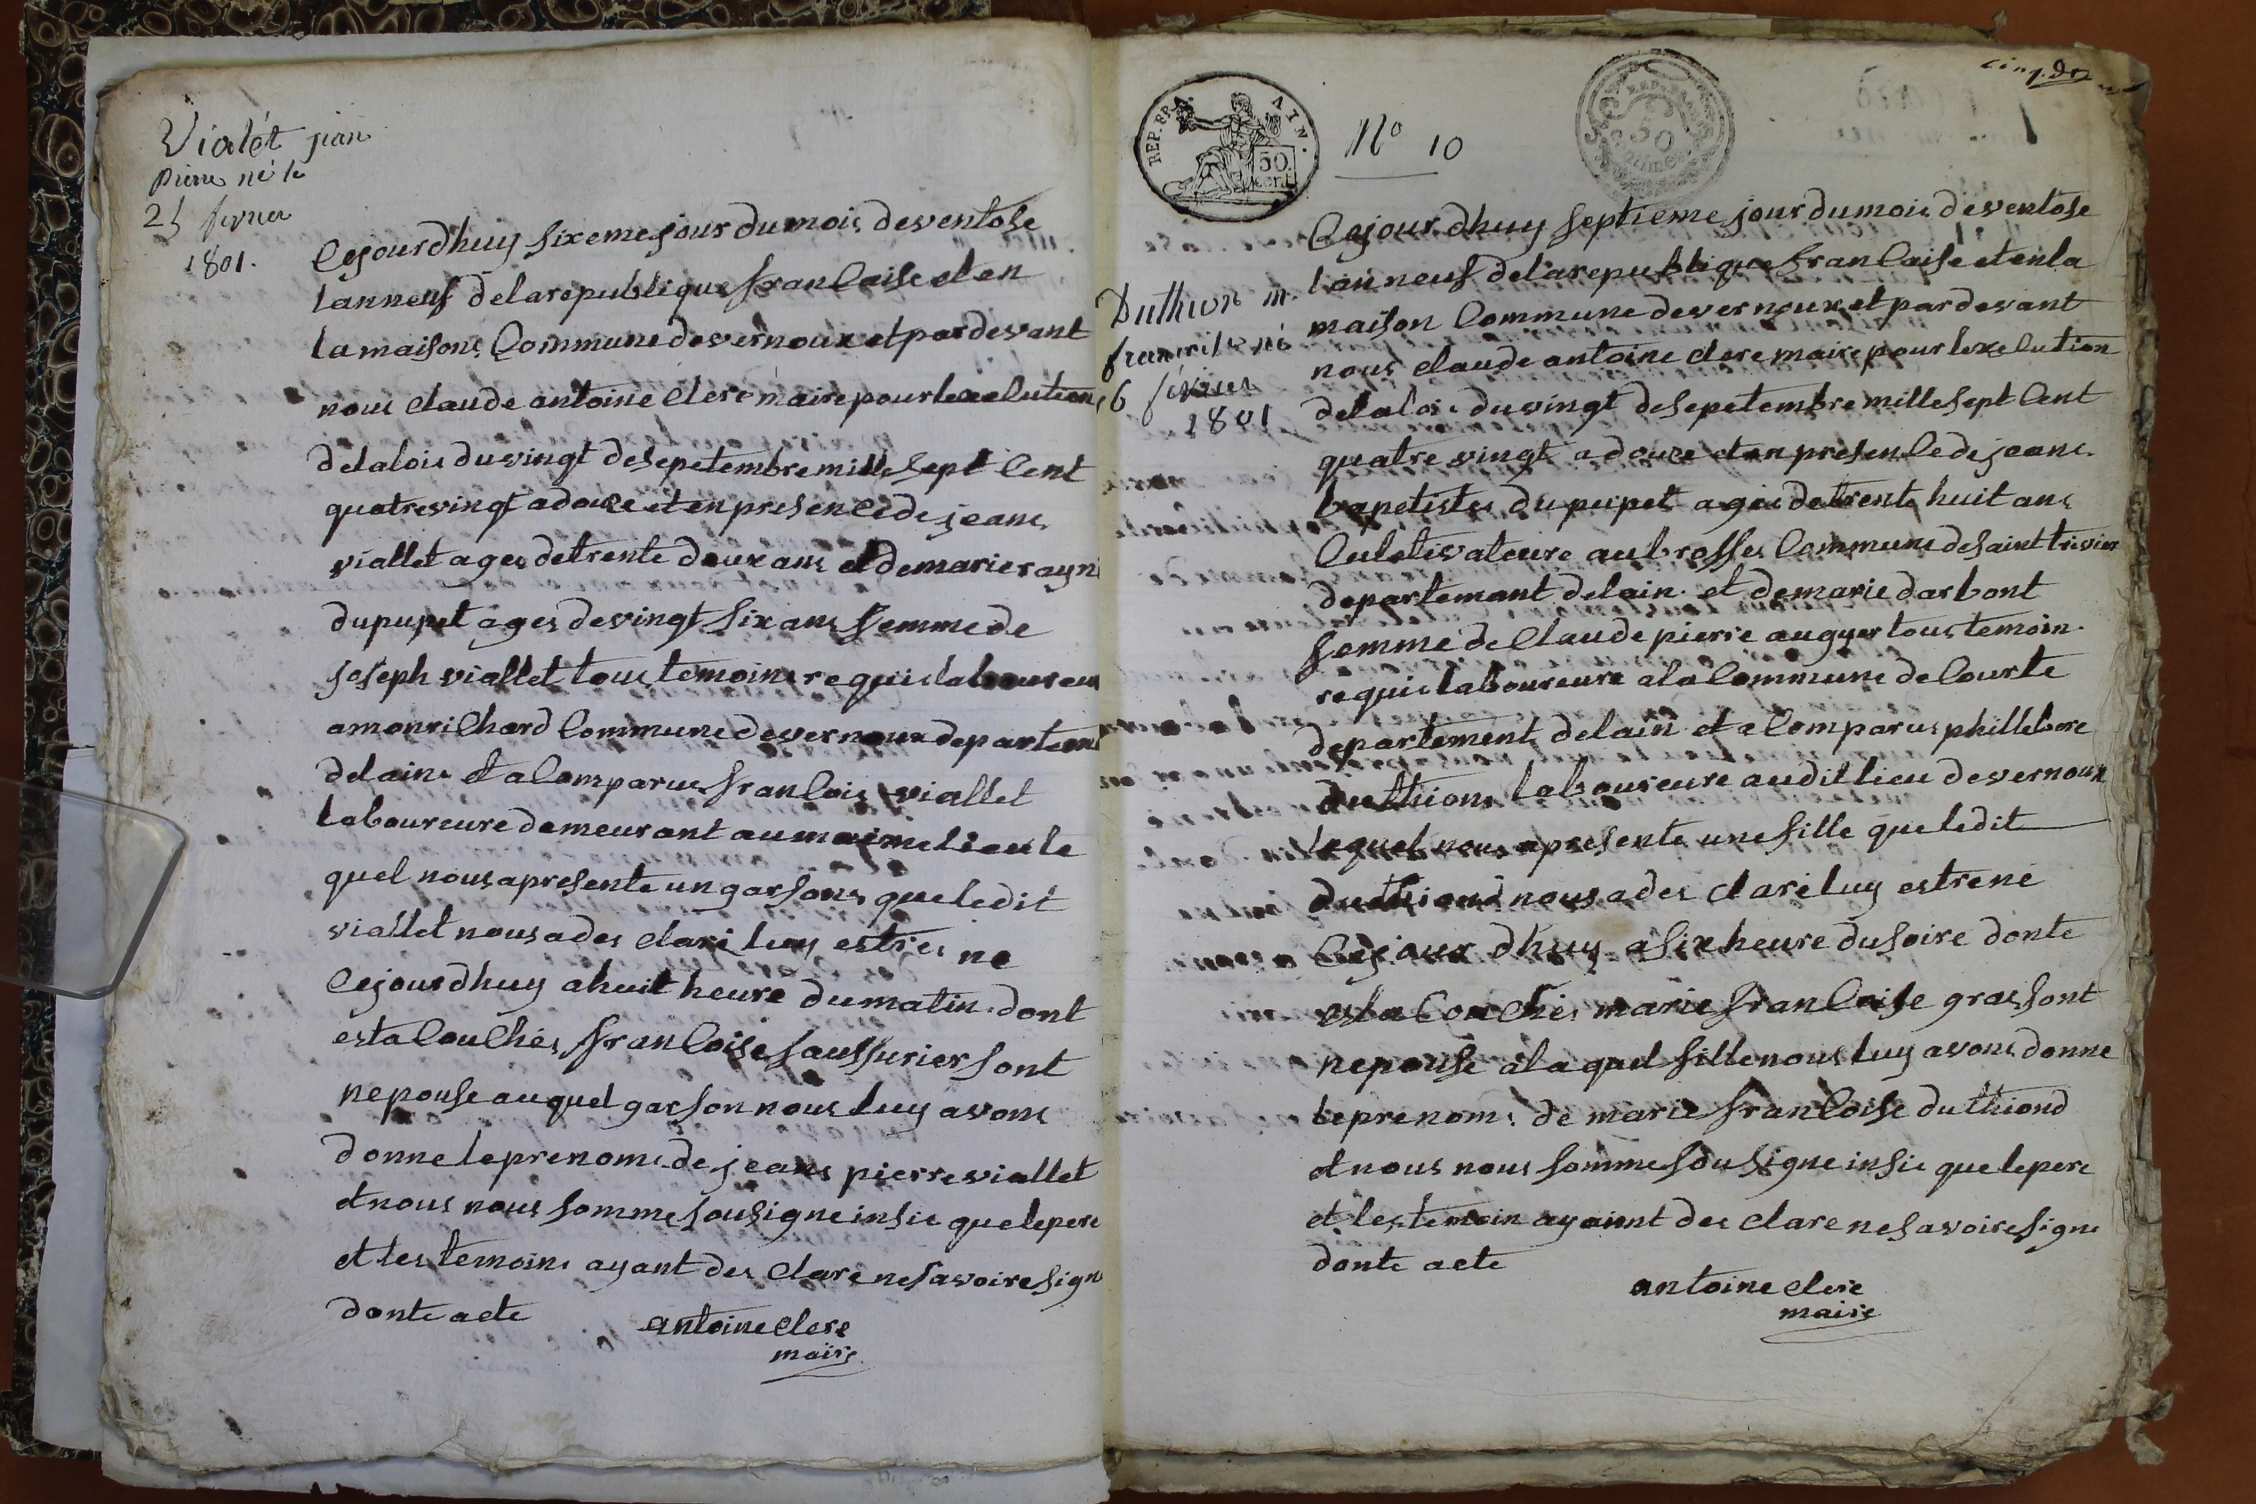 Vialét jean
pierre né le
25 fevrier
1801.
Cejourdhuy sixeme jour du mois de ventose
lan neuf de la republique francaise et en
la maisons Commune de vernoux et par devant
nous claude antoine clere maire pour lexecution
de la lois du vingt de sepetembre mille sept Cent
quatre vingt a douze et en presence de jeans
viallet ages de trente deux ans et de marie rayn
dupupet ages de vingt six ans femme de
joseph viallet tous temoins requis laboureur
a monrichard Commune de vernoux departem
de lains et a Comparus francois viallet
laboureure demeurant au maime lieu le
quel nous a presente un garsons que ledit
viallet nous a des clare luy estres ne
Cejourdhuy a huit heure du matin dont
est a Couches francoise saussurier sont
nepouse auquel garson nous luy avons
donne le prenoms de jeans pierre viallet
et nous nous somme sousigne insis que le pere
et les temoins ayant des clare ne savoire signe
donte acte
antoine clere
maire
cinq. di
REP. FRA.
50 cent
N° 10
50
Centimes
Duthion m.
francoise né
6 février
1801
Cejourdhuy septieme jour du mois de ventose
lan neuf de la republique francaise et en la
maison Commune de vernoux et par devant
nous claude antoine clere maire pour lexecution
de la lois du vingt de sepetembre mille sept Cent
quatre vingt a douze et en presence de jeans
bapetistes dupupet ages de trente huit ans
Culetivateure au brosses Commune de saint trivier
departemant de lain et de marie darbont
femme de Claude pierre auguer tous temoin
requis laboureure a la Commune de Courte
departement de lain et a Comparus phillebere
duthions laboureure audit lieu de vernoux
lequel nous a presente une fille que ledit
duthiond nous a des clare luy estre ne
Cejourdhuy a six heure du soire donte
est a Couches marie francoise grassont
nepouse a laquel fille nous luy avons donne
le prenoms de marie francoise duthiond
et nous nous somme sousigne insis que le pere
et les temoin ayaint des clare ne savoire signe
donte acte
antoine clere
maire